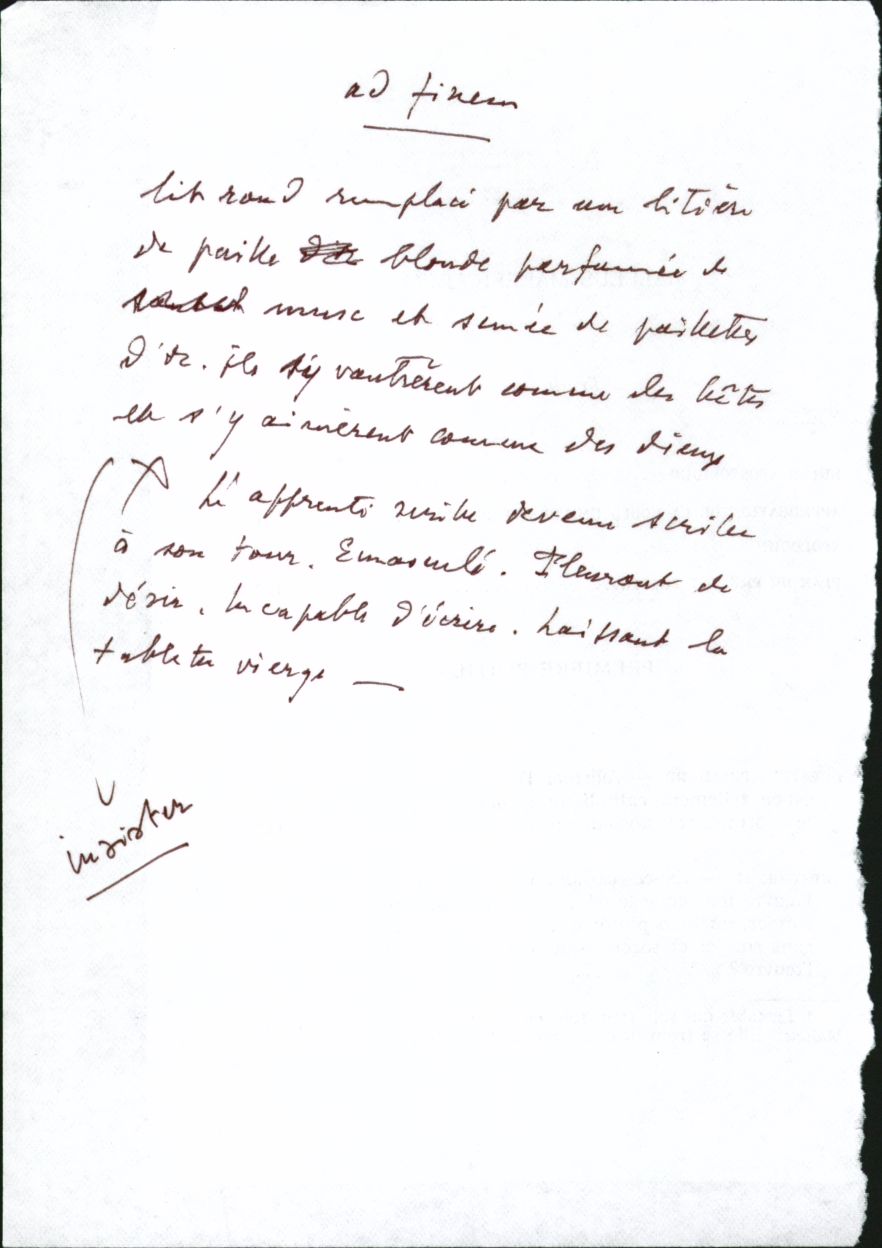 ad finem
lit rond remplacé par une litière
de paille blonde parfumée de
musc et semée de paillettes
d'or. ils s'y vautrèrent comme des bêtes
et s'y aimèrent comme des dieux
L'apprenti scribe devenu scribe
à son tour. Emasculé. Pleurant de
désir. Incapable d'écrire. Laissant la
tablette vierge —
insister